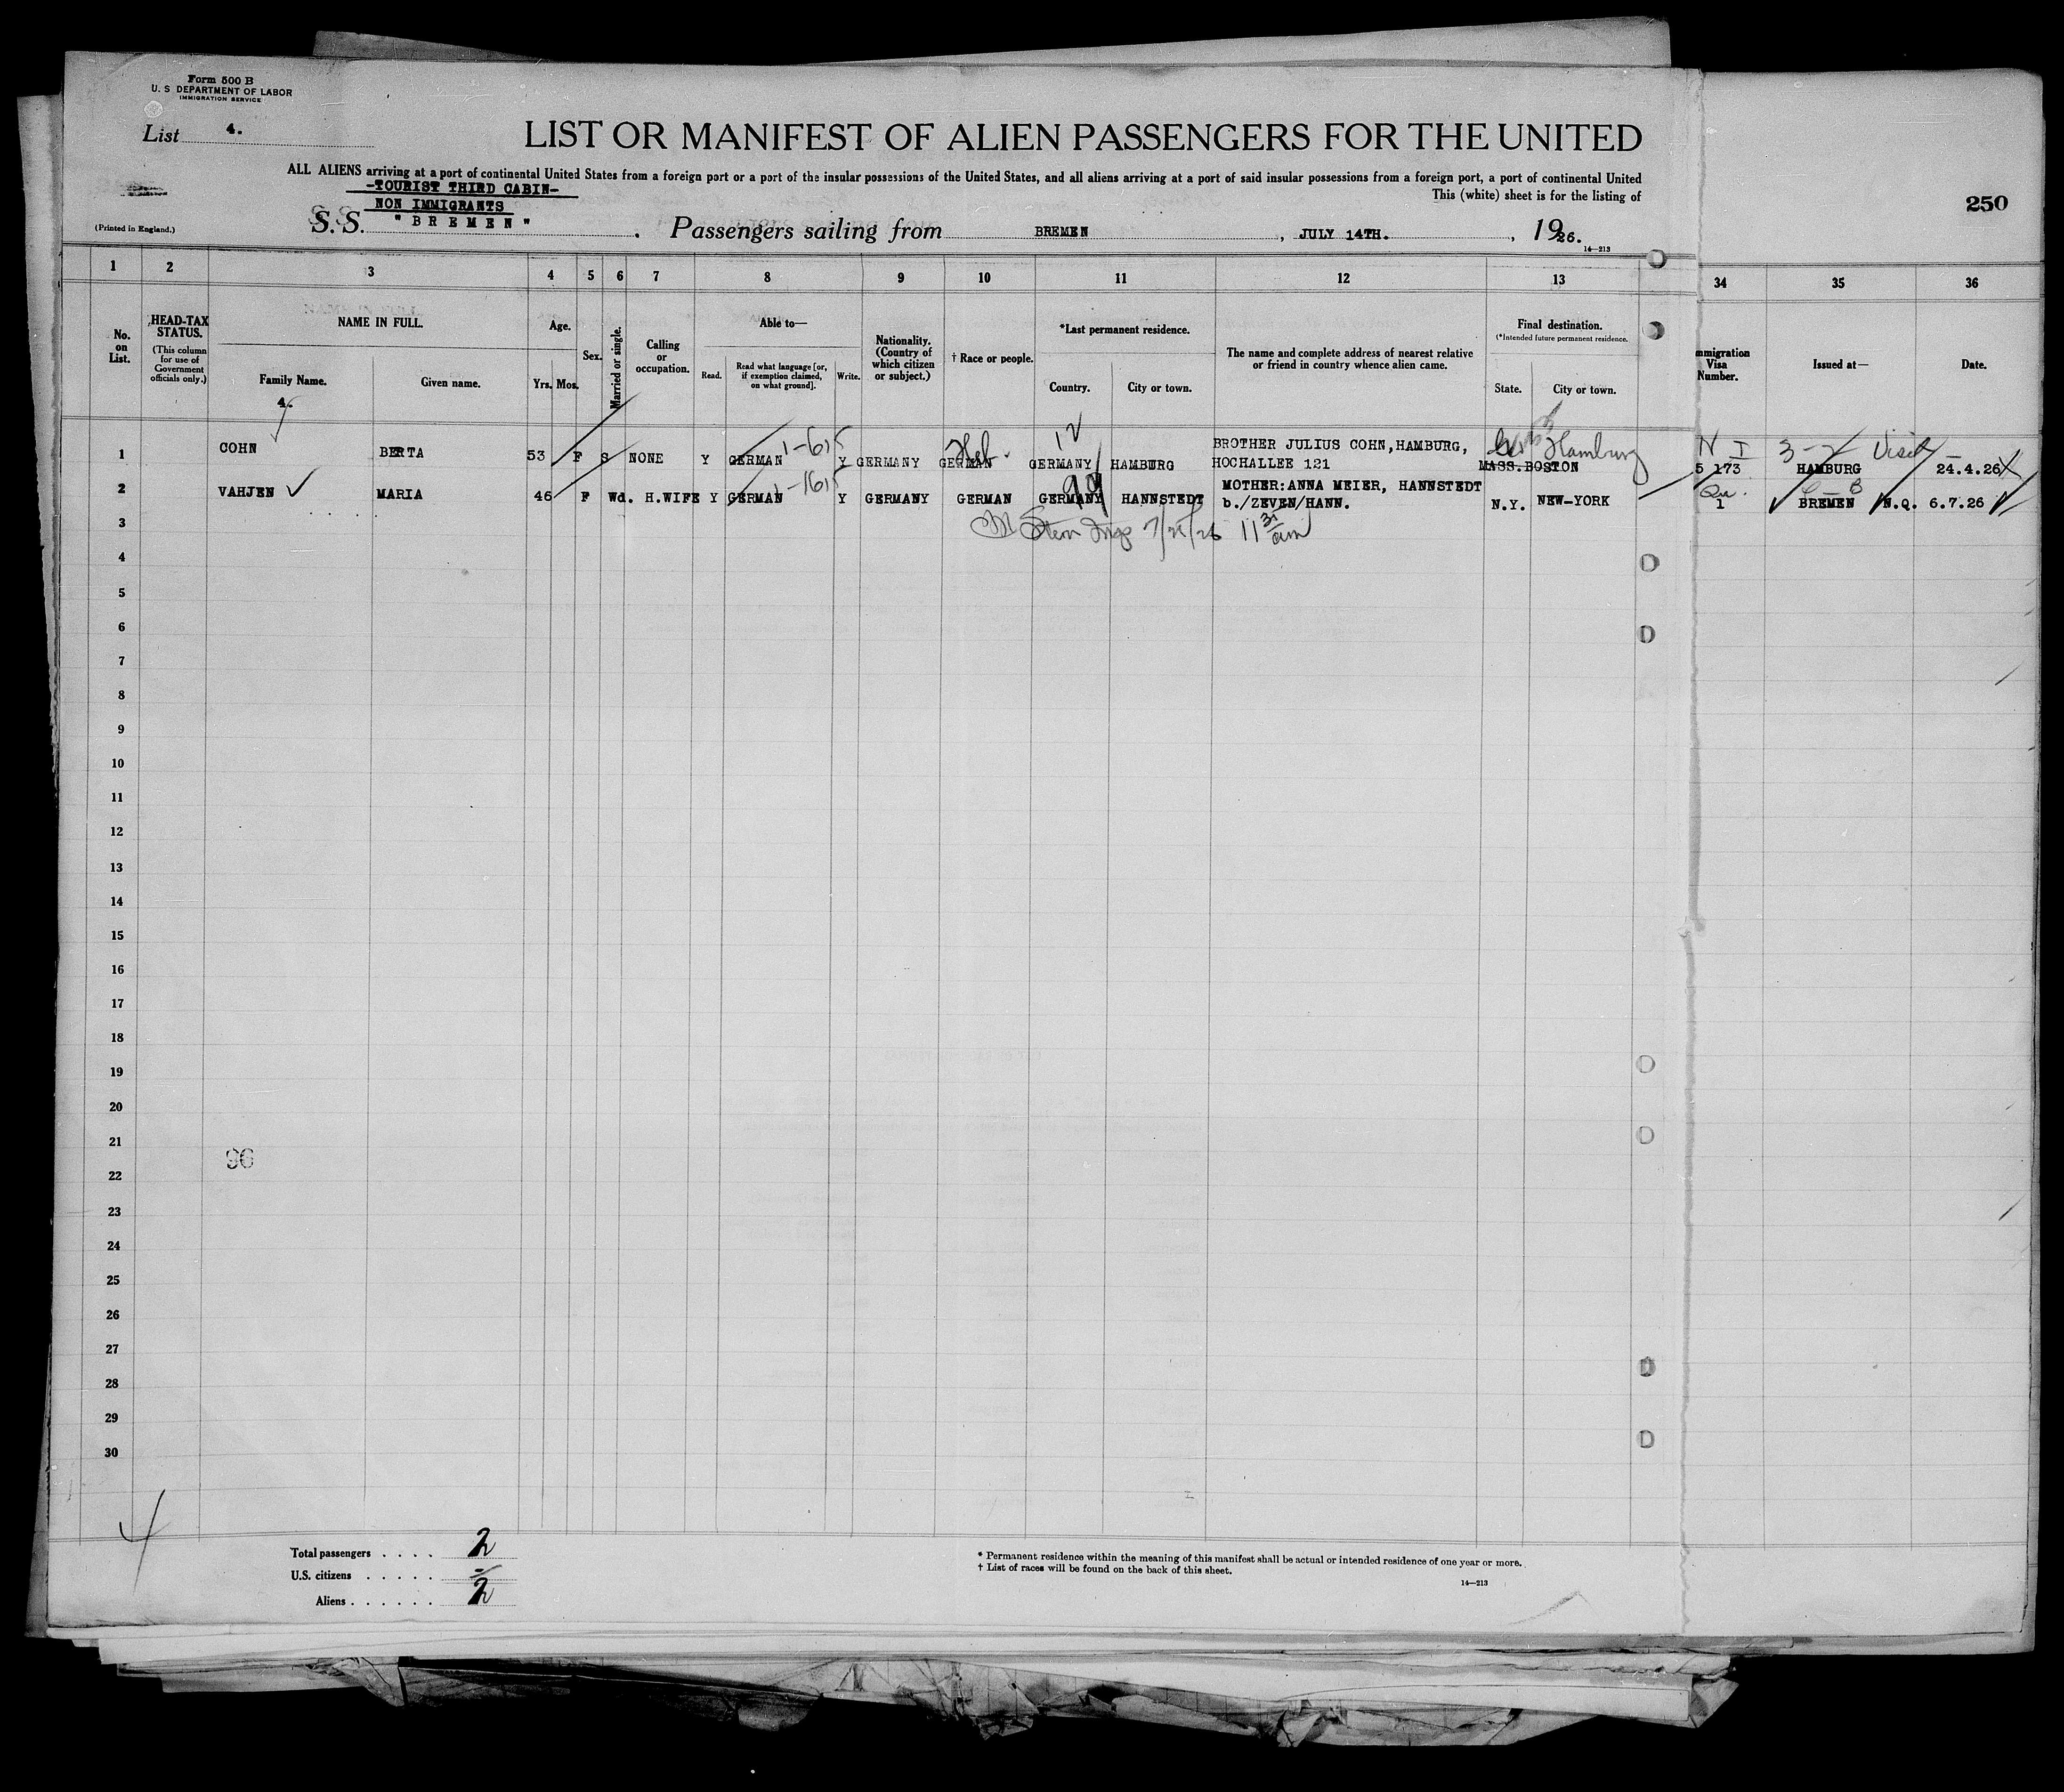 Form 500 B
U. S DEPARTMENT OF LABOR
IMMIGRATION SERVICE
List 4.
LIST OR MANIFEST OF ALIEN PASSENGERS FOR THE UNITED
ALL ALIENS arriving at a port of continental United States from a foreign port or a port of the insular possessions of the United States, and all aliens arriving at a port of said insular possessions from a foreign port, a port of continental United
-TOURIST THIRD CABIN-
This (white) sheet is for the listing of
NON IMMIGRANTS
250
(Printed in England.)
S. S. "BREMEN" . Passengers sailing from BREMEN , JULY 14TH. , 1926.
14—213
1 2 3 4 5 6 7 8 9 10 11 12 13 34 35 36
No. on List.
HEAD-TAX STATUS.
(This column for use of Government officials only.)
NAME IN FULL.
Family Name.
Given name.
Age.
Yrs. Mos.
Sex.
Married or single.
Calling or occupation.
Able to—
Read.
Read what language [or, if exemption claimed, on what ground].
Write.
Nationality. (Country of which citizen or subject.)
† Race or people.
*Last permanent residence.
Country.
City or town.
The name and complete address of nearest relative or friend in country whence alien came.
Final destination.
(*Intended future permanent residence.
State.
City or town.
mmigration Visa Number.
Issued at—
Date.
4.
1-615 Heb. 12 Hamburg N I 3-2 Visit
1 COHN BERTA 53 F S NONE Y GERMAN Y GERMANY GERMAN GERMANY HAMBURG BROTHER JULIUS COHN,HAMBURG, HOCHALLEE 121 MASS.BOSTON 5 173 HAMBURG 24.4.26
1-1615 99 Qu. B
2 VAHJEN MARIA 46 F Wd. H.WIFE Y GERMAN Y GERMANY GERMAN GERMANY HANNSTEDT MOTHER:ANNA MEIER, HANNSTEDT b./ZEVEN/HANN. N.Y. NEW-YORK 1 BREMEN N.Q. 6.7.26
3
Stern Insp 7/21/26 11 31 am
4
5
6
7
8
9
10
11
12
13
14
15
16
17
18
19
20
21
96
22
23
24
25
26
27
28
29
30
Total passengers . . . . 2
U.S. citizens . . . . . -
Aliens . . . . . . 2
* Permanent residence within the meaning of this manifest shall be actual or intended residence of one year or more.
† List of races will be found on the back of this sheet.
14—213